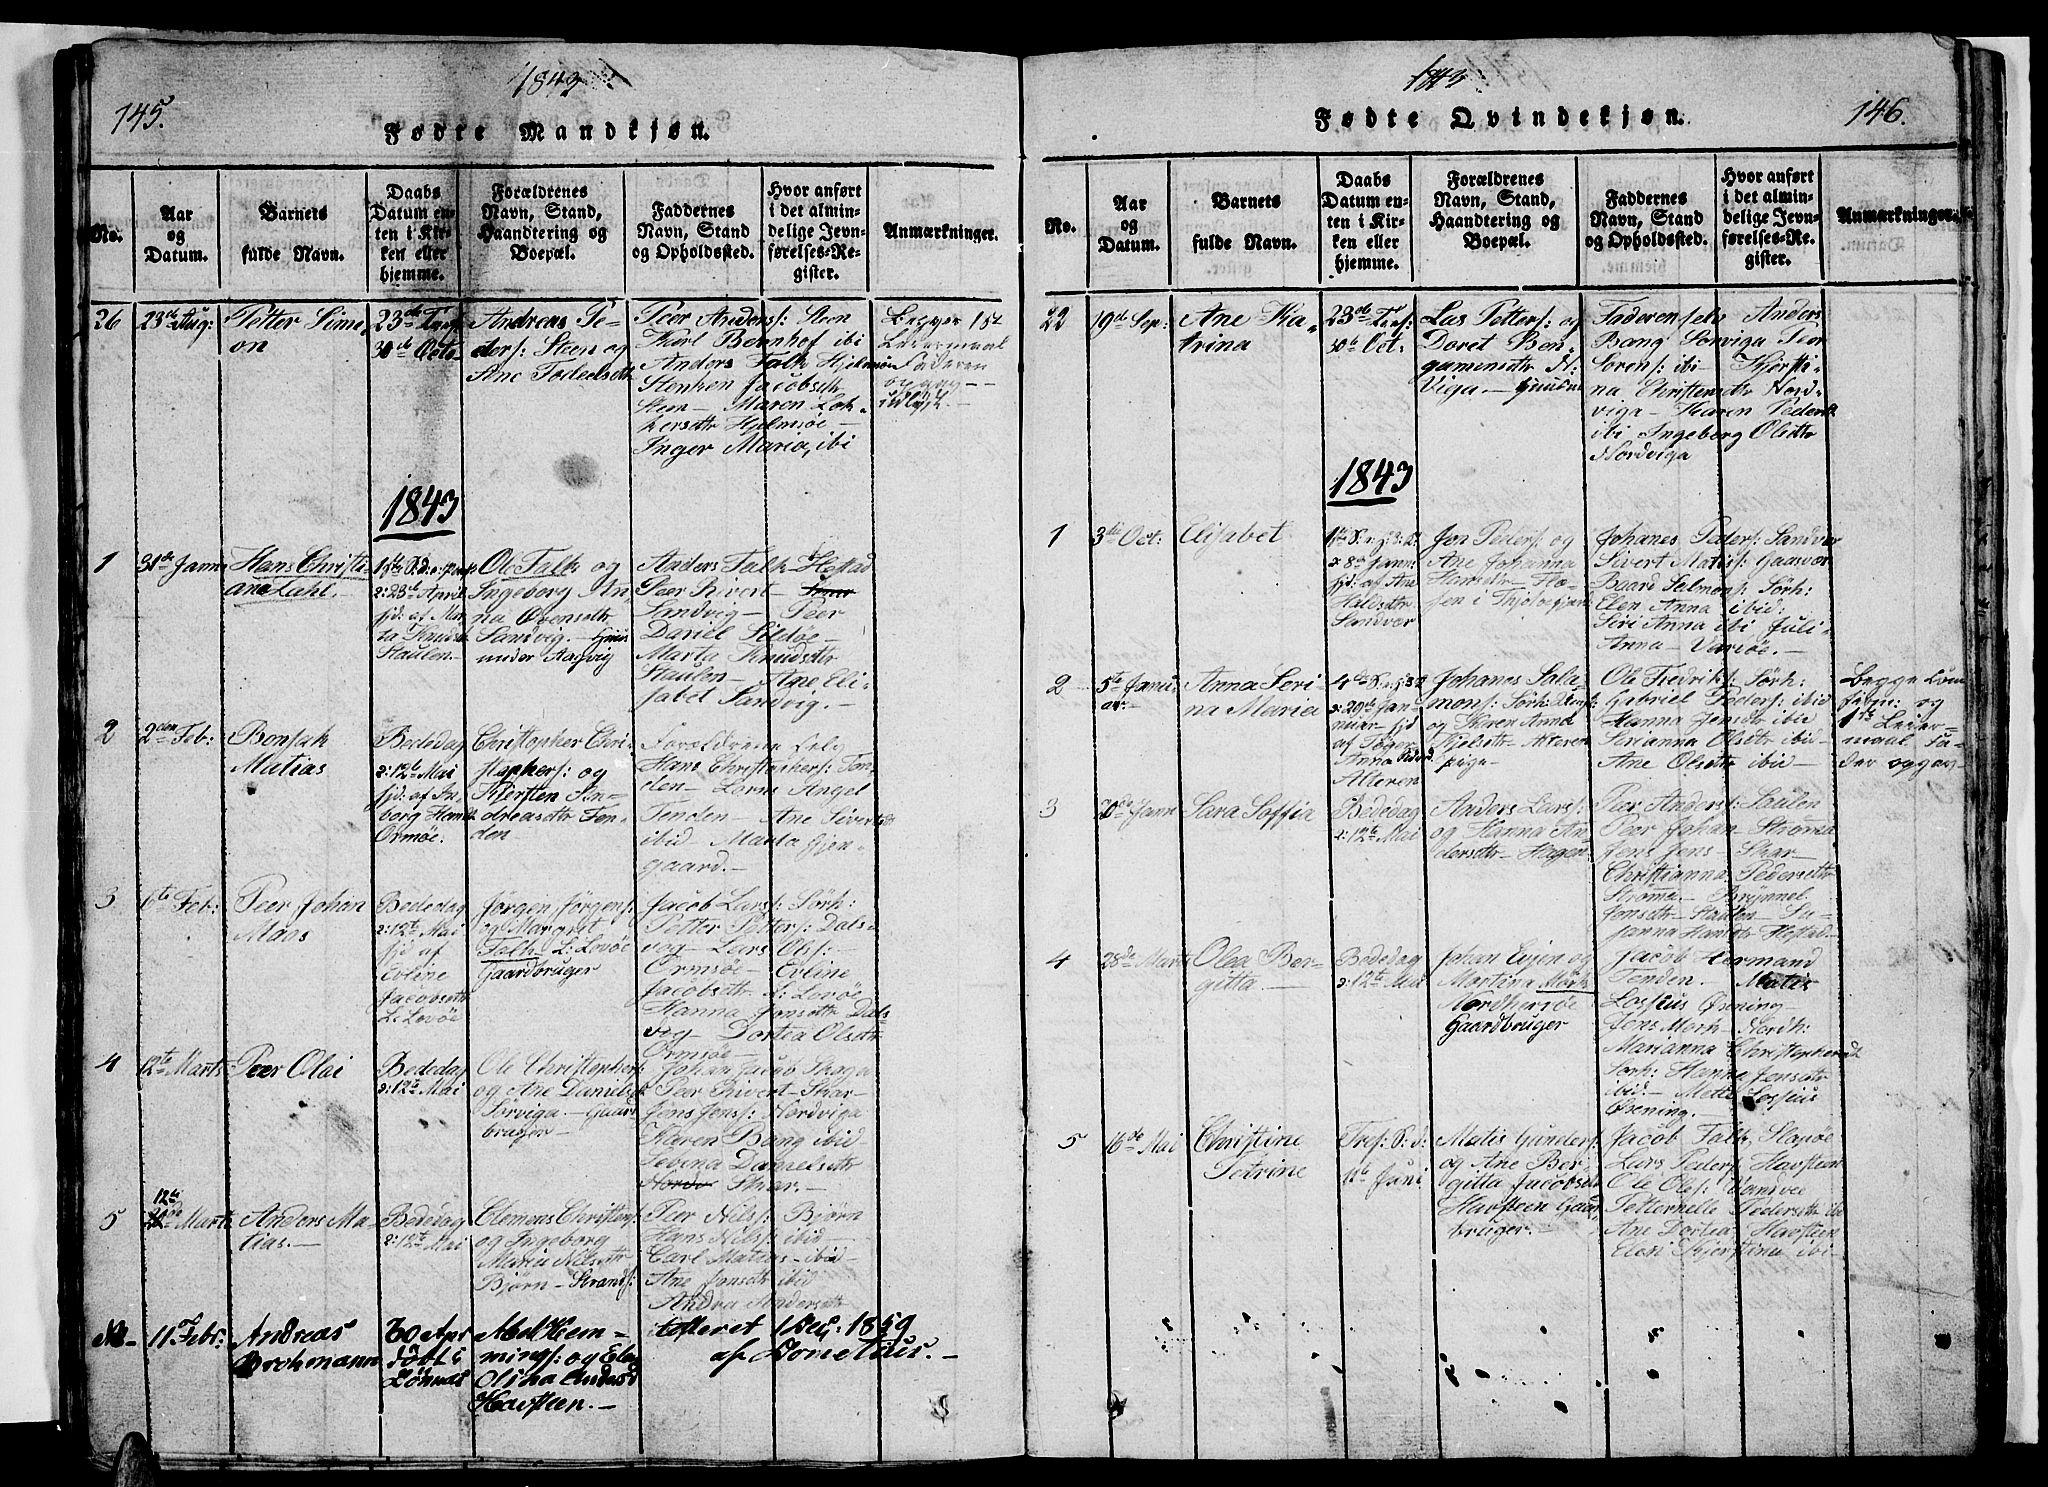 1842
145.
Fødte Mandkjøn.
No.
Aar
og
Datum.
Barnets
fulde Navn.
Daabs
Datum en-
ten i Kir-
ken eller
hjemme.
Forældrenes
Navn, Stand,
Haandtering og
Boepæl.
Faddernes
Navn, Stand
og Opholdssted.
Hvor anført
i det almin-
delige Jevn-
førelses-Re-
gister.
Anmærkninger.
26
23de Aug:
Petter Sime
on
23de
30te Octo
Andreas Pe-
ders: Steen og
Ane
Peer Anders: Steen
Karl Bernhof ibi
Anders Falk Hjelmsöe
Jacobsdtr
Steen - Maren
Hjelmsöe -
Inger Maria, ibi
1843
1
31te Janu
Hans Christi-
an Dahl.
2: 23de April
hjd: af Mar
ta Knuds
Staulen.
Ole Falk og
Ingeborg An
na
Sandvig. -
under Aagvig
Anders Falk Hestad
Peer Sivert
Sandvig - Peer
Daniel Sildöe -
Marta Knudsdtr
Staulen - Ane Eli-
sabet Sandvig. -
2
2den Feb:
Bonsak
Matias
Bededag
2: 12te Mai
hjd: af In
borg Hans
Ormöe.
Christopher Chri-
stophers: og
Kjersten An-
dreasdtr Ten-
den
Forældrene selv
Hans Christophers: Ten-
den - Lorns Angel
Tenden - Ane Siverts
ibid - Marta Jen-
gaard. -
3
6te Feb:
Peer Johan
Maas
Bededag
2: 12te Mai
hjd af
Evline
Jacobsdtr
L: Lovöe
Jørgen Jørgens:
og Margrit
Falk L: Lovöe
Gaardbruger
Jacob Lars: Sörh:
Petter Petters: Dals-
vog - Lars Ols:
Ormsöe - Evline
Jacobsdtr L: Lovöe
Hanna Jonsdtr Dals-
vog - Dortea Olsdtr
Ormsöe -
4
12te Marts
Peer Olai
Bededag
2: 12te Mai
Ole Christophers
og Ane Daniels
Sörviga. - Gaard
bruger -
Johan Jacob Skaga
Peer Sivert - Skar -
Jens Jens: Nordviga
Karen Bang ibid
Sevina Danielsdtr
Skar. -
5
12te
Marts
Anders Ma-
tias. -
Bededag
2: 12te Mai
Clemens Christens:
og Ingeborg
Maria Nilsdtr
Bjørn - Strands:
Peer Nils: Bjørn
Hans Nils: ibid -
Carl Matias - ibid -
Ane Jonsdtr ibid
Andrea Andersdtr
11 Febr:
Andreas
Brohmann
30 Apr
döbt i
Dönnes
Abel Hem-
mings: og Elen
Olina Andersd
Havsteen. -
tilföiet 1 Dec: 1859
af
1843
Fødte Qvindekjøn.
146.
No.
Aar
og
Datum.
Barnets
fulde Navn.
Daabs
Datum en-
ten i Kir-
ken eller
hjemme.
Forældrenes
Navn, Stand,
Haandtering og
Boepæl.
Faddernes
Navn, Stand
og Opholdssted.
Hvor anført
i det almin-
delige Jevn-
førelses-Re-
gister.
Anmærkninger.
22
19de Sep:
Ane Ka-
trina
23de
30te Oct:
Las Petters: og
Doret Ben-
gamensdtr N:
Viga. -
Faderen selv Anders
Bang Sörviga Peer
Sörens: ibi - Kjersti-
na Christensdtr Nord-
viga - Karen Peders
ibi Ingeborg Olsdtr
Nordviga
1843
1
3die Oct:
Elisabet
2: 8de Janu
hjd: af Ane
Haldsdtr
Sandvær
Jon Peders: og
Ane Johanna
Hansdtr
Johanes Peders: Sandvær
Sivert Matis: Gaasvær
Baard Selmons: Sörh:
Elen Anna ibid:
Seri Anna ibi Juli-
Anna - Varsöe. -
2
5te Janu-
ar:
Anna Seri-
na Maria
2: 29de Jan-
nuar hjd
af Inger
Anna
Alteren
Johanes Sala-
mons: Sörh:
og Karen Anna
Njelsdtr Alteren
pige -
Ole Fredrik: Sörh:
Gabriel Peders: ibid
Hanna Jensdtr ibid
Serianna Olsdtr ibid -
Ane Olsdtr ibid -
Begge
og
1te Leier-
maal Fa-
der opgav -
3
20de Janu
Sara Soffia
Bededag
2: 12te Mai
Anders Lars:
og Hanna An-
dersdtr - Hagen
Peer Anders: Staulen
Peer Johan - Strömsa
Jens Jens - Skar -
Christianna Pedersdtr
Strömsa - Brynnel
Jensdtr - Staulen - Su-
janna Hansdtr Hestad -
4
28de Marts
Olea Ber-
gitta. -
Bededag
2: 12te Mai
Johan Eijen og
Martina Mörk
Nordherröe
Gaardbruger
Jacob Hermand
Tenden. Matis
Lossius Øsening -
Jens Mork - Nordh:
Marianna Christophersdt
Sörh: Hanna Jensdtr
ibid. - Mette Lossius
Øsening. -
5
16de Mai
Christine
Petrine
Tref: S: d:
11te Juni
Matis Gunders:
og Ane Ber-
gitta Jacobsd
Havsteen Gaar
bruger. -
Jacob Falk, Slapöe
Lars Peders Havsteen
Ole Oles: Sandvee
Petternelle Pedersdtr ibi
Ane Dortea Havsteen
Elen Kjerstina ibi -